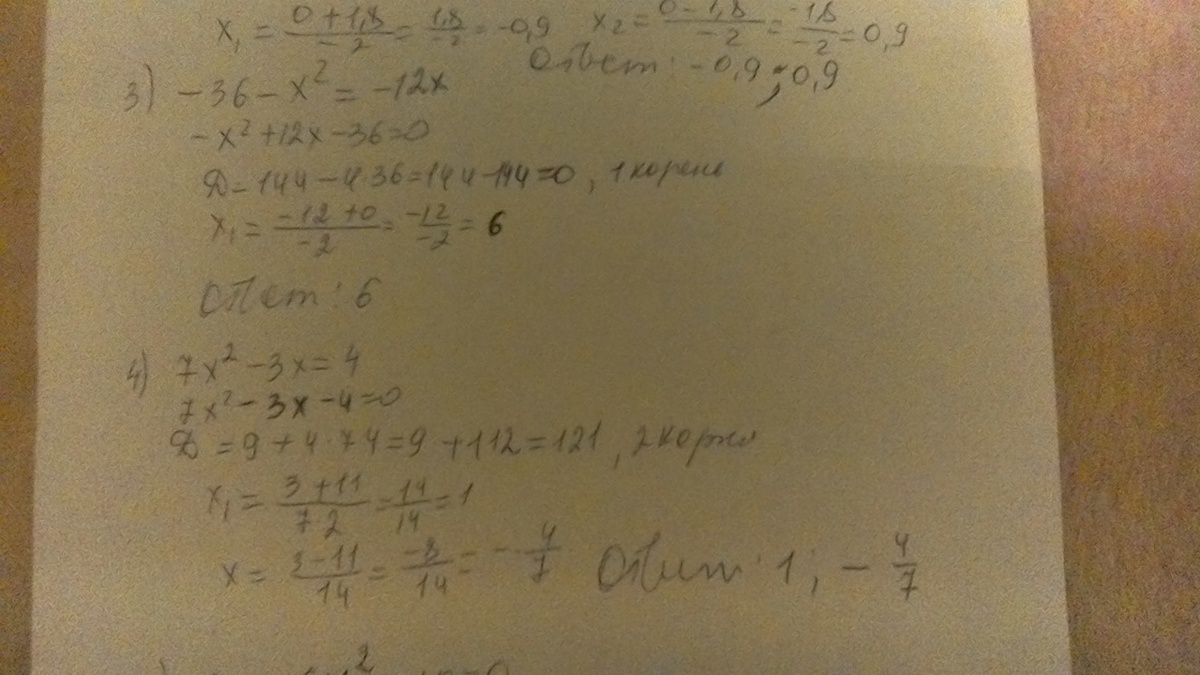 x₁ = (0+1,8)/(-2) = 1,8/(-2) = -0,9 x₂ = (0-1,8)/(-2) = -1,8/(-2) = 0,9
Ответ: -0,9; 0,9
3) -36 - x² = -12x
-x² + 12x - 36 = 0
D = 144 - 4·36 = 144 - 144 = 0, 1 корень
x₁ = (-12+0)/(-2) = -12/(-2) = 6
Ответ: 6
4) 7x² - 3x = 4
7x² - 3x - 4 = 0
D = 9 + 4·7·4 = 9 + 112 = 121, 2 корня
x₁ = (3+11)/(7·2) = 14/14 = 1
x = (3-11)/14 = -8/14 = -4/7 Ответ: 1; -4/7